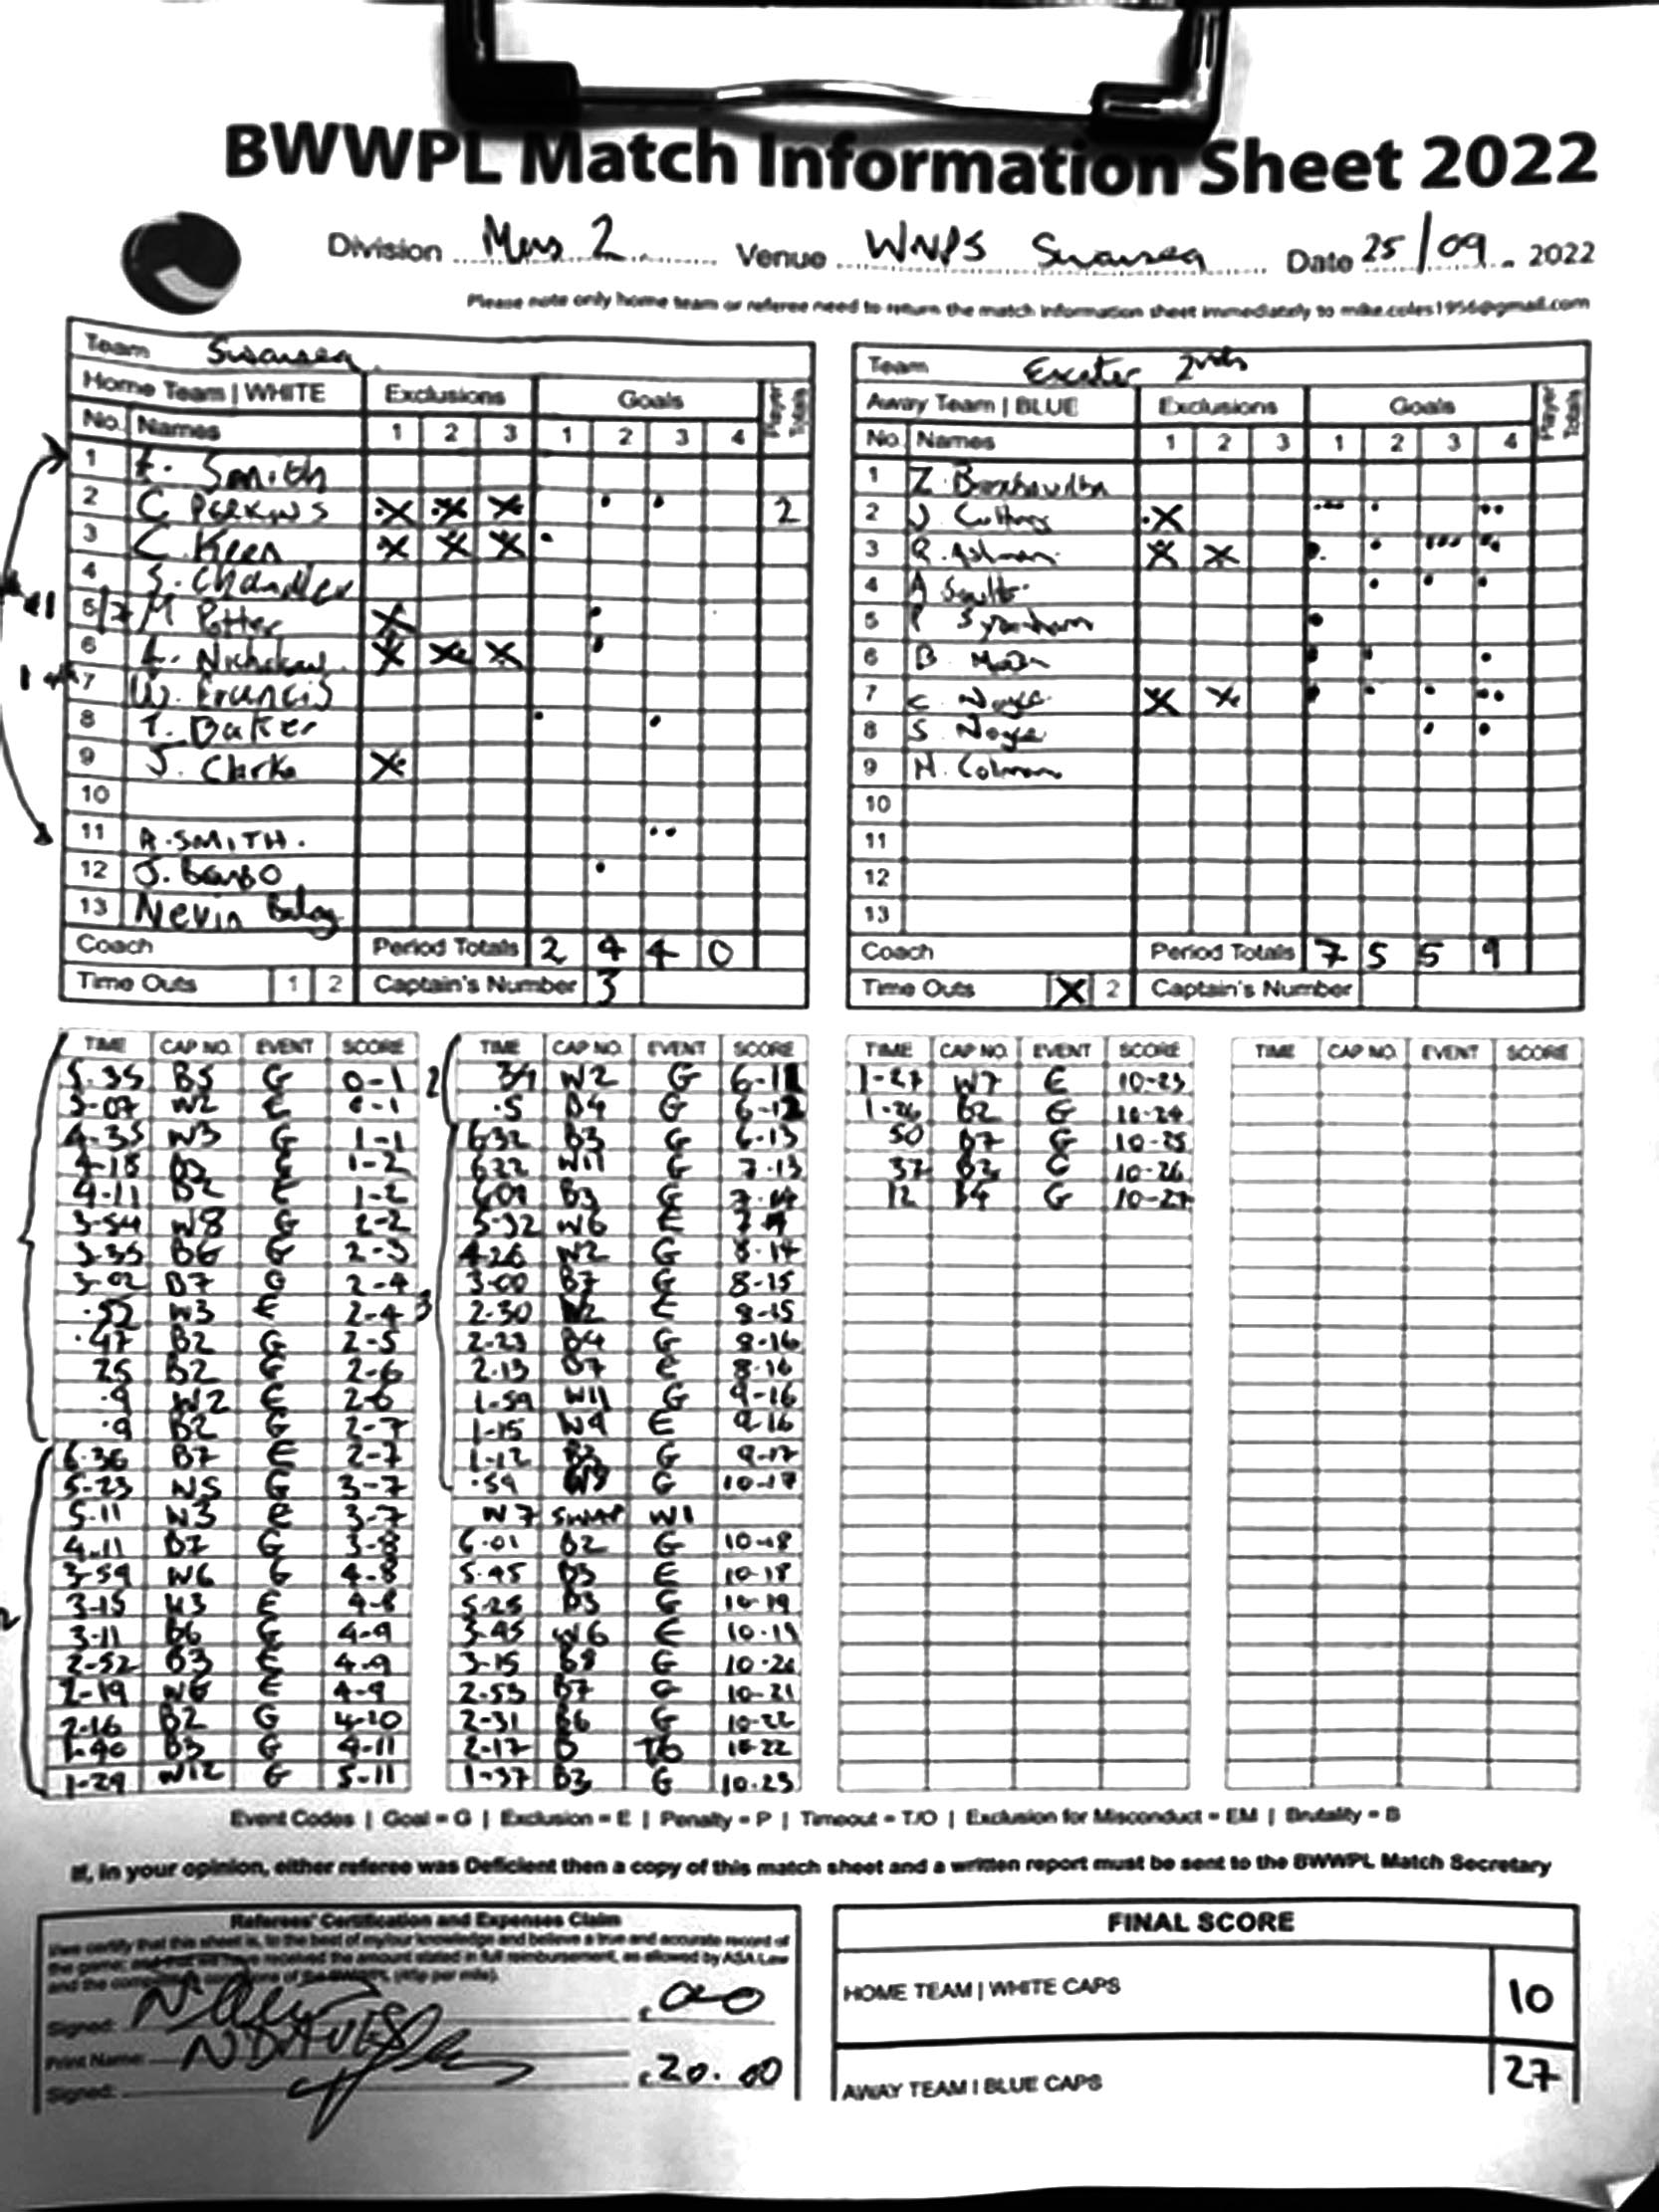 BWWPL Match Information Sheet 2022
Division Mens 2 Venue WNPS Swansea Date 25/09 2022
Please note only home team or referee need to return the match information sheet immediately to mike.coles1956@gmail.com
Team Swansea
Home Team | WHITE Exclusions Goals Player Totals
No. Names 1 2 3 1 2 3 4
1 Smith
2 C PERKINS X X X 2
3 C. Keen X X X
4 S. Chandler
5 M Potter X
6 X X X
7 W. Francis
8 T. Baker
9 J. Clarke X
10
11 A. SMITH.
12 J.
13 Nevin
Coach Period Totals 2 4 4 0
Time Outs 1 2 Captain's Number 3
Team Exeter 2nds
Away Team | BLUE Exclusions Goals Player Totals
No. Names 1 2 3 1 2 3 4
1 Z.
2 X
3 R. X X
4 A
5
6 B
7 C. Noyce X X
8 S Noyce
9 Colman
10
11
12
13
Coach Period Totals 7 5 5 9
Time Outs X 2 Captain's Number
TIME CAP NO. EVENT SCORE
5.35 B5 G 0-1
W2 E 0-1
4-35 W3 G 1-1
4-18 1-2
4-11 B2 E 1-2
3-54 W8 G 2-2
3-35 B6 G 2-3
3-02 B7 G 2-4
.52 W3 E 2-4
.47 B2 G 2-5
25 B2 G 2-6
.9 W2 E 2-6
.9 B2 G 2-7
6.36 B7 E 2-7
5-23 W5 G 3-7
5.11 W3 E 3-7
4.11 B7 G 3-8
3-59 W6 G 4-8
3-15 W3 E 4-8
3-11 B6 G 4-9
2-52 B3 E 4-9
2-19 W6 E 4-9
2-16 B2 G 4-10
1-40 B3 G 4-11
1-29 W12 G 5-11
TIME CAP NO. EVENT SCORE
34 W2 G 6-11
.5 B4 G 6-12
632 B3 G 6-13
622 W11 G 7-13
B3 G 7-14
5-32 W6 E
4-26 W2 G 8-14
3-00 B7 G 8-15
2-30 W2 E 8-15
2-23 B4 G 8-16
2-13 B7 E 8-16
1-59 W11 G 9-16
1-15 W9 E 9-16
1-12 B3 G 9-17
.59 G 10-17
W7 SWAP W1
6-01 B2 G 10-18
5.45 B3 E 10-18
5-25 B3 G 10-19
3-45 W6 E 10-19
3-15 B8 G 10-20
2-53 B7 G 10-21
2-31 B6 G 10-22
2-17 B T/O 10-22
1-37 B3 G 10-23
TIME CAP NO. EVENT SCORE
1-27 W7 E 10-23
1-26 B2 G 10-24
50 B7 G 10-25
37 B3 G 10-26
12 B4 G 10-27
TIME CAP NO. EVENT SCORE
Event Codes | Goal = G | Exclusion = E | Penalty = P | Timeout = T/O | Exclusion for Misconduct = EM | Brutality = B
If, in your opinion, either referee was Deficient then a copy of this match sheet and a written report must be sent to the BWWPL Match Secretary
Referees' Certification and Expenses Claim
I/we certify that this sheet is, to the best of my/our knowledge and believe a true and accurate record of
received the amount stated in full reimbursement, as allowed by ASA Law
Signed: £ 00-0
Print Name: N DAVIES
Signed: £ 20.00
FINAL SCORE
HOME TEAM | WHITE CAPS 10
AWAY TEAM | BLUE CAPS 27